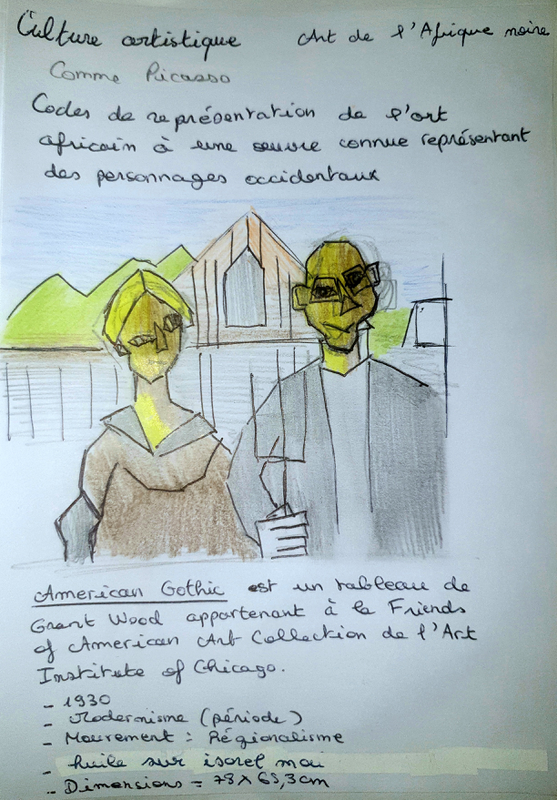 Culture artistique Art de l'Afrique noire
Comme Picasso
Codes de représentation de l'art
africain à une œuvre connue représentant
des personnages occidentaux
American Gothic est un tableau de
Grant Wood appartenant à la Friends
of American Art Collection de l'Art
Institute of Chicago.
- 1930
- Modernisme (période)
- Mouvement : Régionalisme
- huile sur isorel mou
- Dimensions = 78 x 65,3 cm